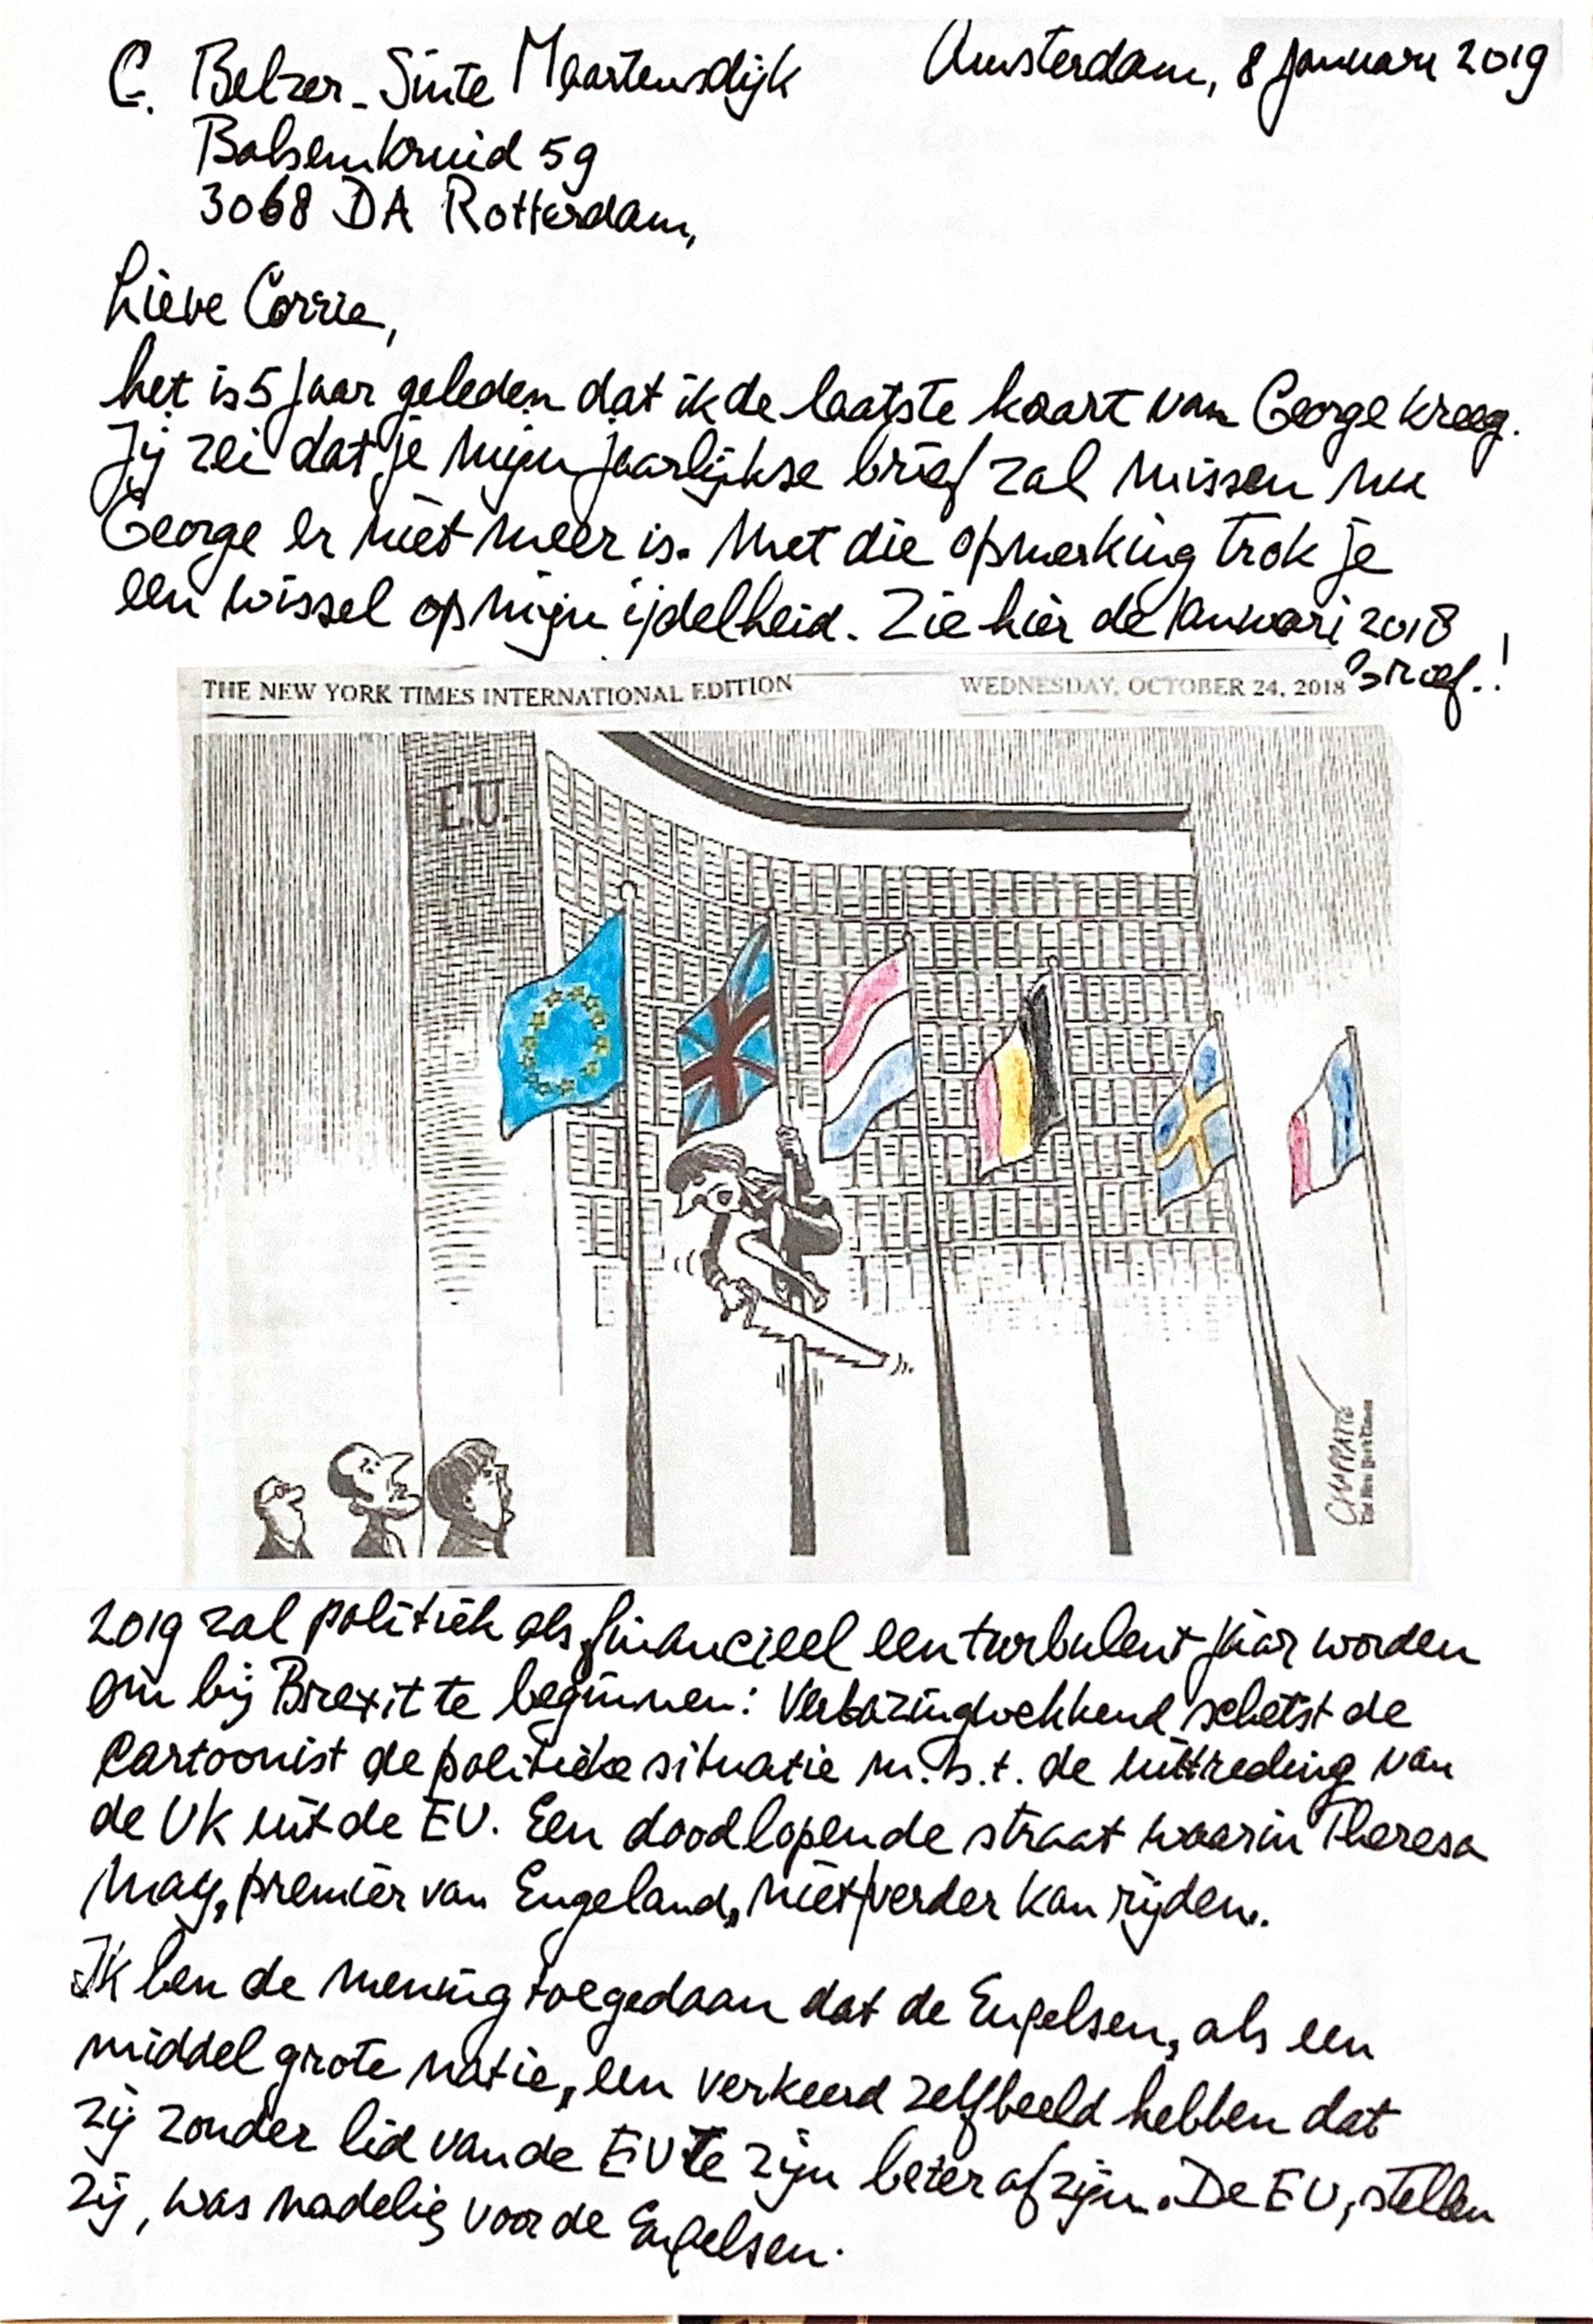 C. Belzer-Sinte Maartensdijk
Amsterdam, 8 januari 2019
Balsemkruid 59
3068 DA Rotterdam,
Lieve Corrie,
het is 5 jaar geleden dat ik de laatste kaart van George kreeg.
Jij zei dat je mijn jaarlijkse brief zal missen nu
George er niet meer is. Met die opmerking trok je
een wissel op mijn ijdelheid. Zie hier de januari 2018
Brief.!
THE NEW YORK TIMES INTERNATIONAL EDITION
WEDNESDAY, OCTOBER 24, 2018
E.U.
CHAPPATTE
The New York Times
2019 zal politiek als financieel een turbulent jaar worden
om bij Brexit te beginnen: Verbazingwekkend schetst de
Cartoonist de politieke situatie m.b.t. de uittreding van
de UK uit de EU. Een doodlopende straat waarin Theresa
May, premier van Engeland, niet verder kan rijden.
Ik ben de mening toegedaan dat de Engelsen, als een
middel grote natie, een verkeerd zelfbeeld hebben dat
zij zonder lid van de EU te zijn beter af zijn. De EU, stellen
zij, was nadelig voor de Engelsen.